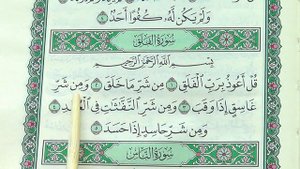 وَلَمْ يَكُن لَّهُۥ كُفُوًا أَحَدٌۢ ٤
سُورَةُ الْفَلَقِ
بِسْمِ اللَّهِ الرَّحْمَٰنِ الرَّحِيمِ
قُلْ أَعُوذُ بِرَبِّ الْفَلَقِ ١ مِن شَرِّ مَا خَلَقَ ٢ وَمِن شَرِّ
غَاسِقٍ إِذَا وَقَبَ ٣ وَمِن شَرِّ النَّفَّٰثَٰتِ فِى الْعُقَدِ ٤
وَمِن شَرِّ حَاسِدٍ إِذَا حَسَدَ ٥
سُورَةُ النَّاسِ